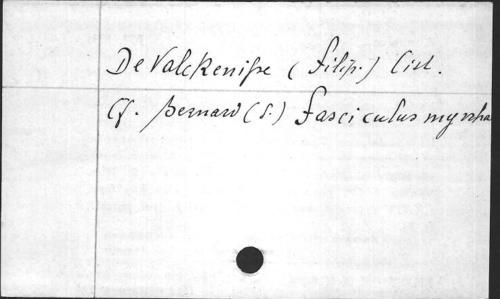 De Valckenisse (Filip.) Cist.
Cf. Bernard (S.) Fasciculus myrrha